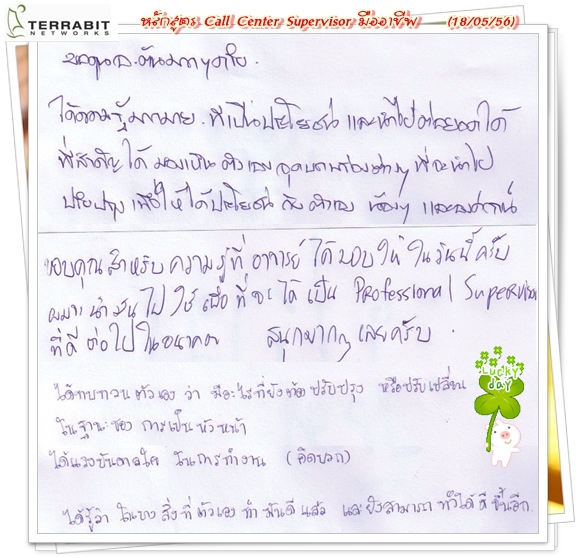 TERRABIT
NETWORKS
หลักสูตร Call Center Supervisor มืออาชีพ (18/05/56)
ขอบคุณ อ.ต้นมากๆครับ.
ได้ความรู้มากมาย. ที่เป็นประโยชน์ และนำไปต่อยอดได้
ที่สำคัญได้ มองเห็น ตัวเอง จุดบกพร่องต่างๆ ที่จะนำไป
ปรับปรุง เพื่อให้ได้ประโยชน์ กับ ตัวเอง น้องๆ และองค์กร
ขอบคุณสำหรับความรู้ที่อาจารย์ได้มอบให้ในวันนี้ครับ
ผมจะนำมันไปใช้เพื่อที่จะได้เป็น Professional Supervisor
ที่ดีต่อไปในอนาคต สนุกมากๆเลยครับ.
ได้ทบทวนตัวเอง ว่า มีอะไรที่ยังต้องปรับปรุง หรือปรับเปลี่ยน
ในฐานะของ การเป็นหัวหน้า
ได้แรงบันดาลใจ ในการทำงาน (คิดบวก)
ได้รู้ว่า ในบางสิ่งที่ตัวเองทำ มันดีแล้ว และยังสามารถทำได้ดีขึ้นอีก.
Lucky
day